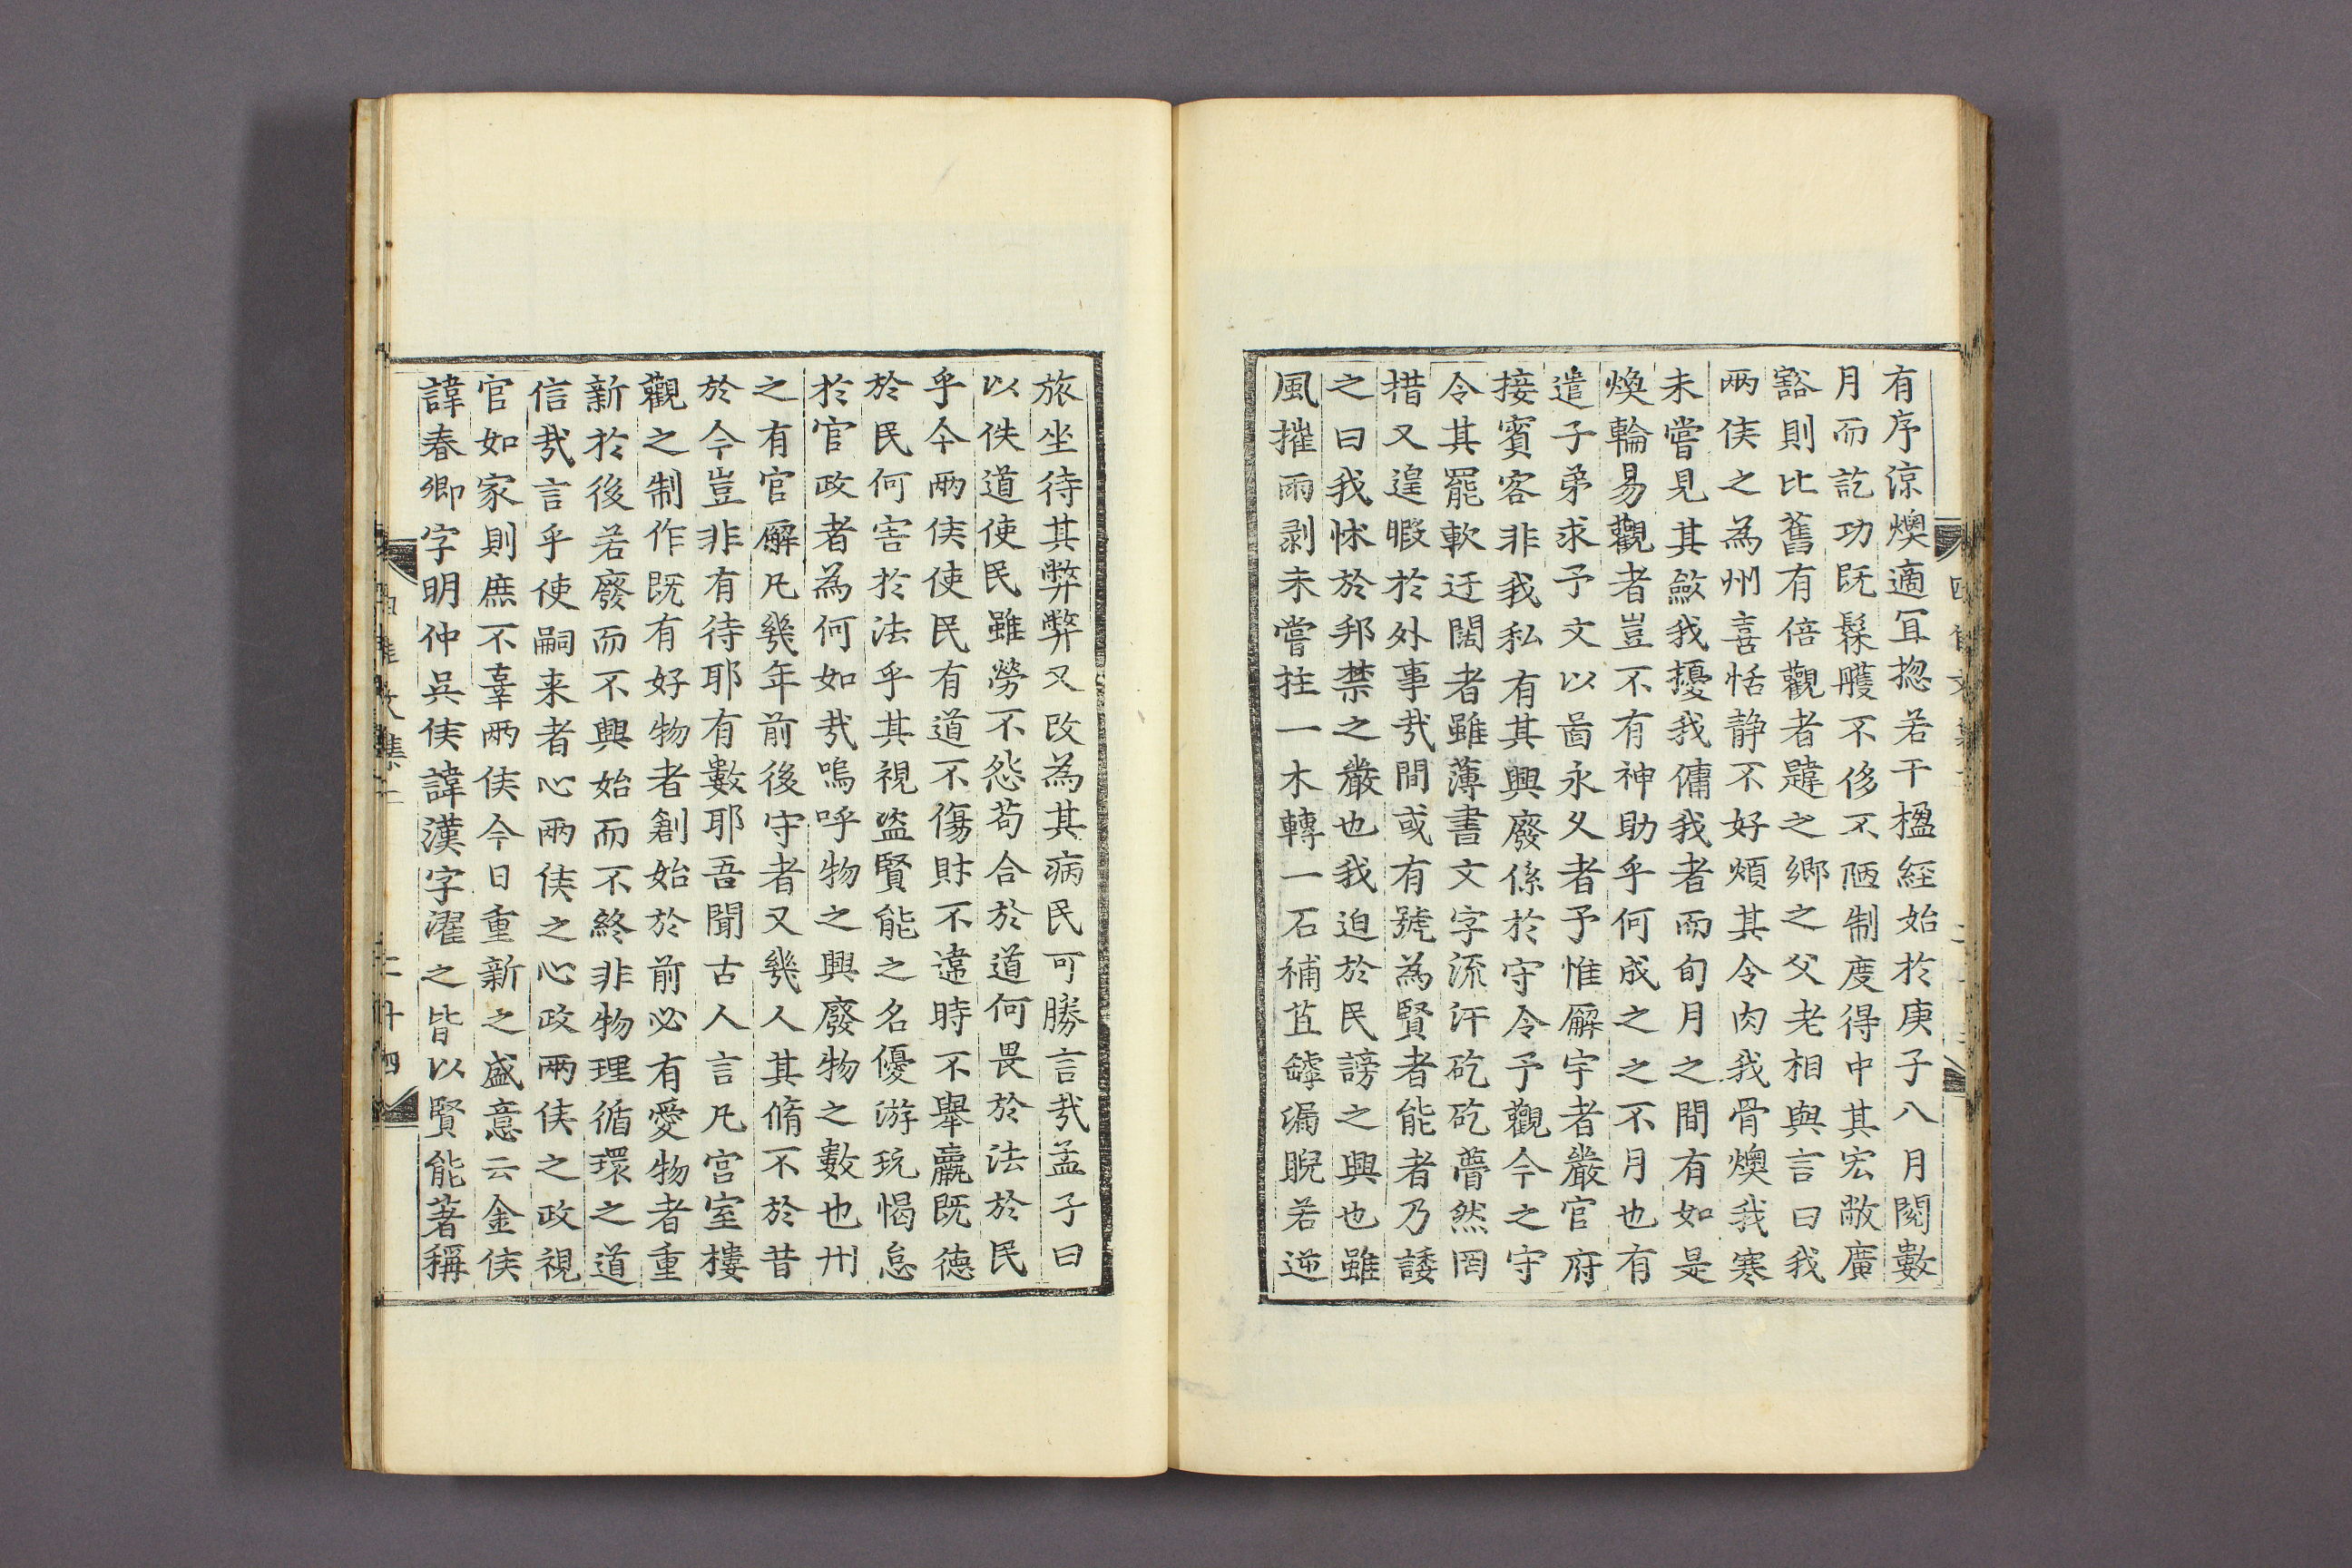 有序涼燠適冝揔若干楹経始於庚子八月閱數
月而訖功既髹雘不侈不陋制度得中其宏敞廣
豁則比舊有倍觀者韙之鄉之父老相與言曰我
兩侯之為州喜恬静不好煩其令肉我骨燠我寒
未嘗見其斂我擾我傭我者而旬月之間有如是
煥輪易觀者豈不有神助乎何成之之不月也有
遣子弟求予文以啚永久者予惟廨宇者嚴官府
接賓客非我私有其興廢係於守令予觀今之守
令其罷軟迂闊者雖薄書文字流汗矻矻瞢然罔
措又遑暇於外事㢤間或有號為賢者能者乃諉
之曰我怵於邦禁之嚴也我迫於民謗之興也雖
風摧雨剥未嘗拄一木轉一石補苴罅漏睨若逆
旅坐待其弊弊又改為其病民可勝言㢤孟子曰
以佚道使民雖勞不怨苟合於道何畏於法於民
乎今兩侯使民有道不傷財不違時不舉羸既徳
於民何害於法乎其視盗賢能之名優游玩愒怠
於官政者為何如㢤嗚呼物之興廢物之數也州
之有官廨凡幾年前後守者又幾人其脩不於昔
於今豈非有待耶有數耶吾聞古人言凡宫室樓
觀之制作既有好物者創始於前必有愛物者重
新於後若廢而不興始而不終非物理循環之道
信㢤言乎使嗣来者心兩侯之心政兩侯之政視
官如家則庶不辜兩侯今日重新之盛意云金侯
諱春卿字明仲呉侯諱漢字濯之皆以賢能著稱
文集二
二十四